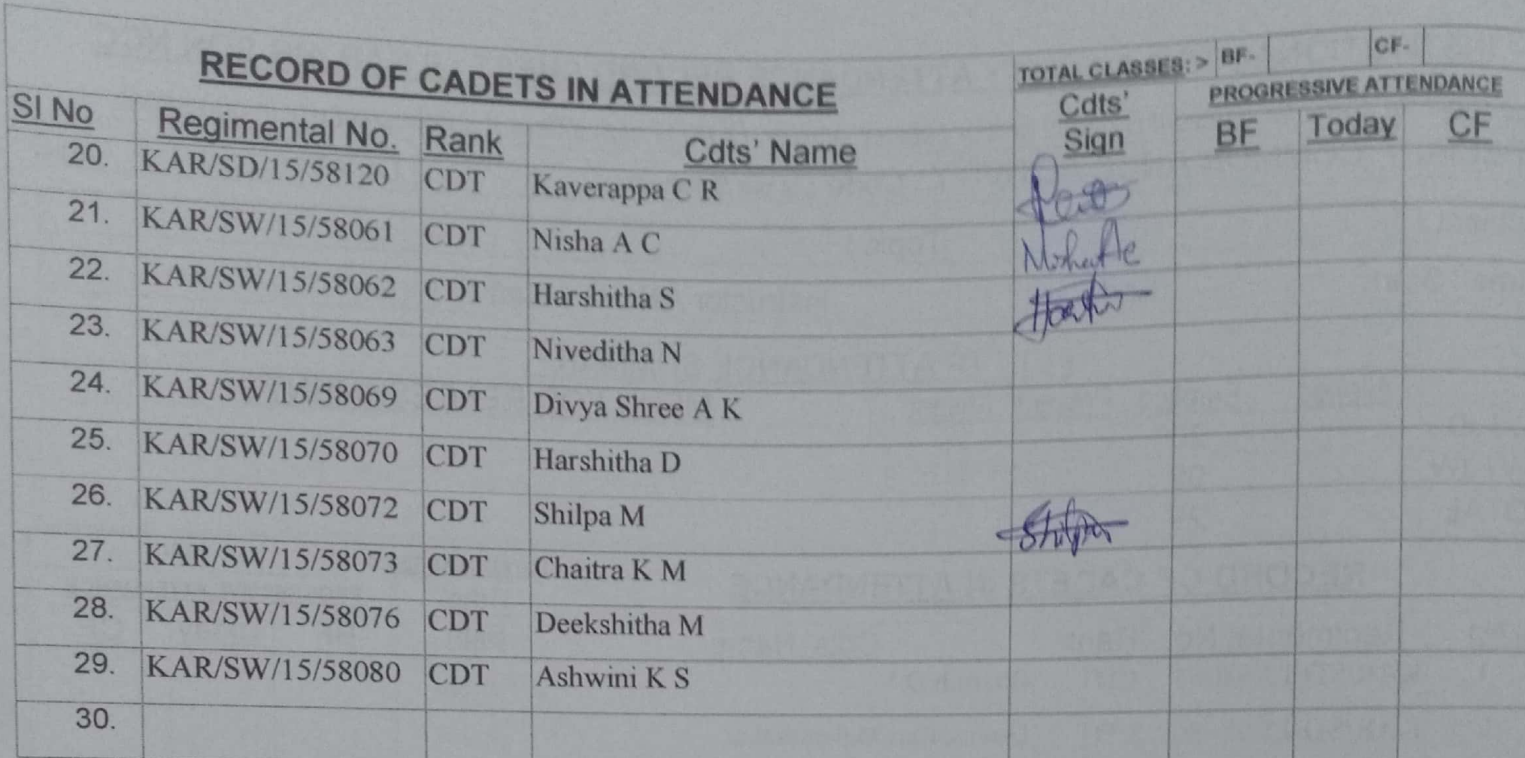 RECORD OF CADETS IN ATTENDANCE
TOTAL CLASSES: > BF- CF-
PROGRESSIVE ATTENDANCE
Sl No Regimental No. Rank Cdts' Name Cdts' Sign BF Today CF
20. KAR/SD/15/58120 CDT Kaverappa C R
21. KAR/SW/15/58061 CDT Nisha A C
22. KAR/SW/15/58062 CDT Harshitha S
23. KAR/SW/15/58063 CDT Niveditha N
24. KAR/SW/15/58069 CDT Divya Shree A K
25. KAR/SW/15/58070 CDT Harshitha D
26. KAR/SW/15/58072 CDT Shilpa M Shilpa
27. KAR/SW/15/58073 CDT Chaitra K M
28. KAR/SW/15/58076 CDT Deekshitha M
29. KAR/SW/15/58080 CDT Ashwini K S
30.